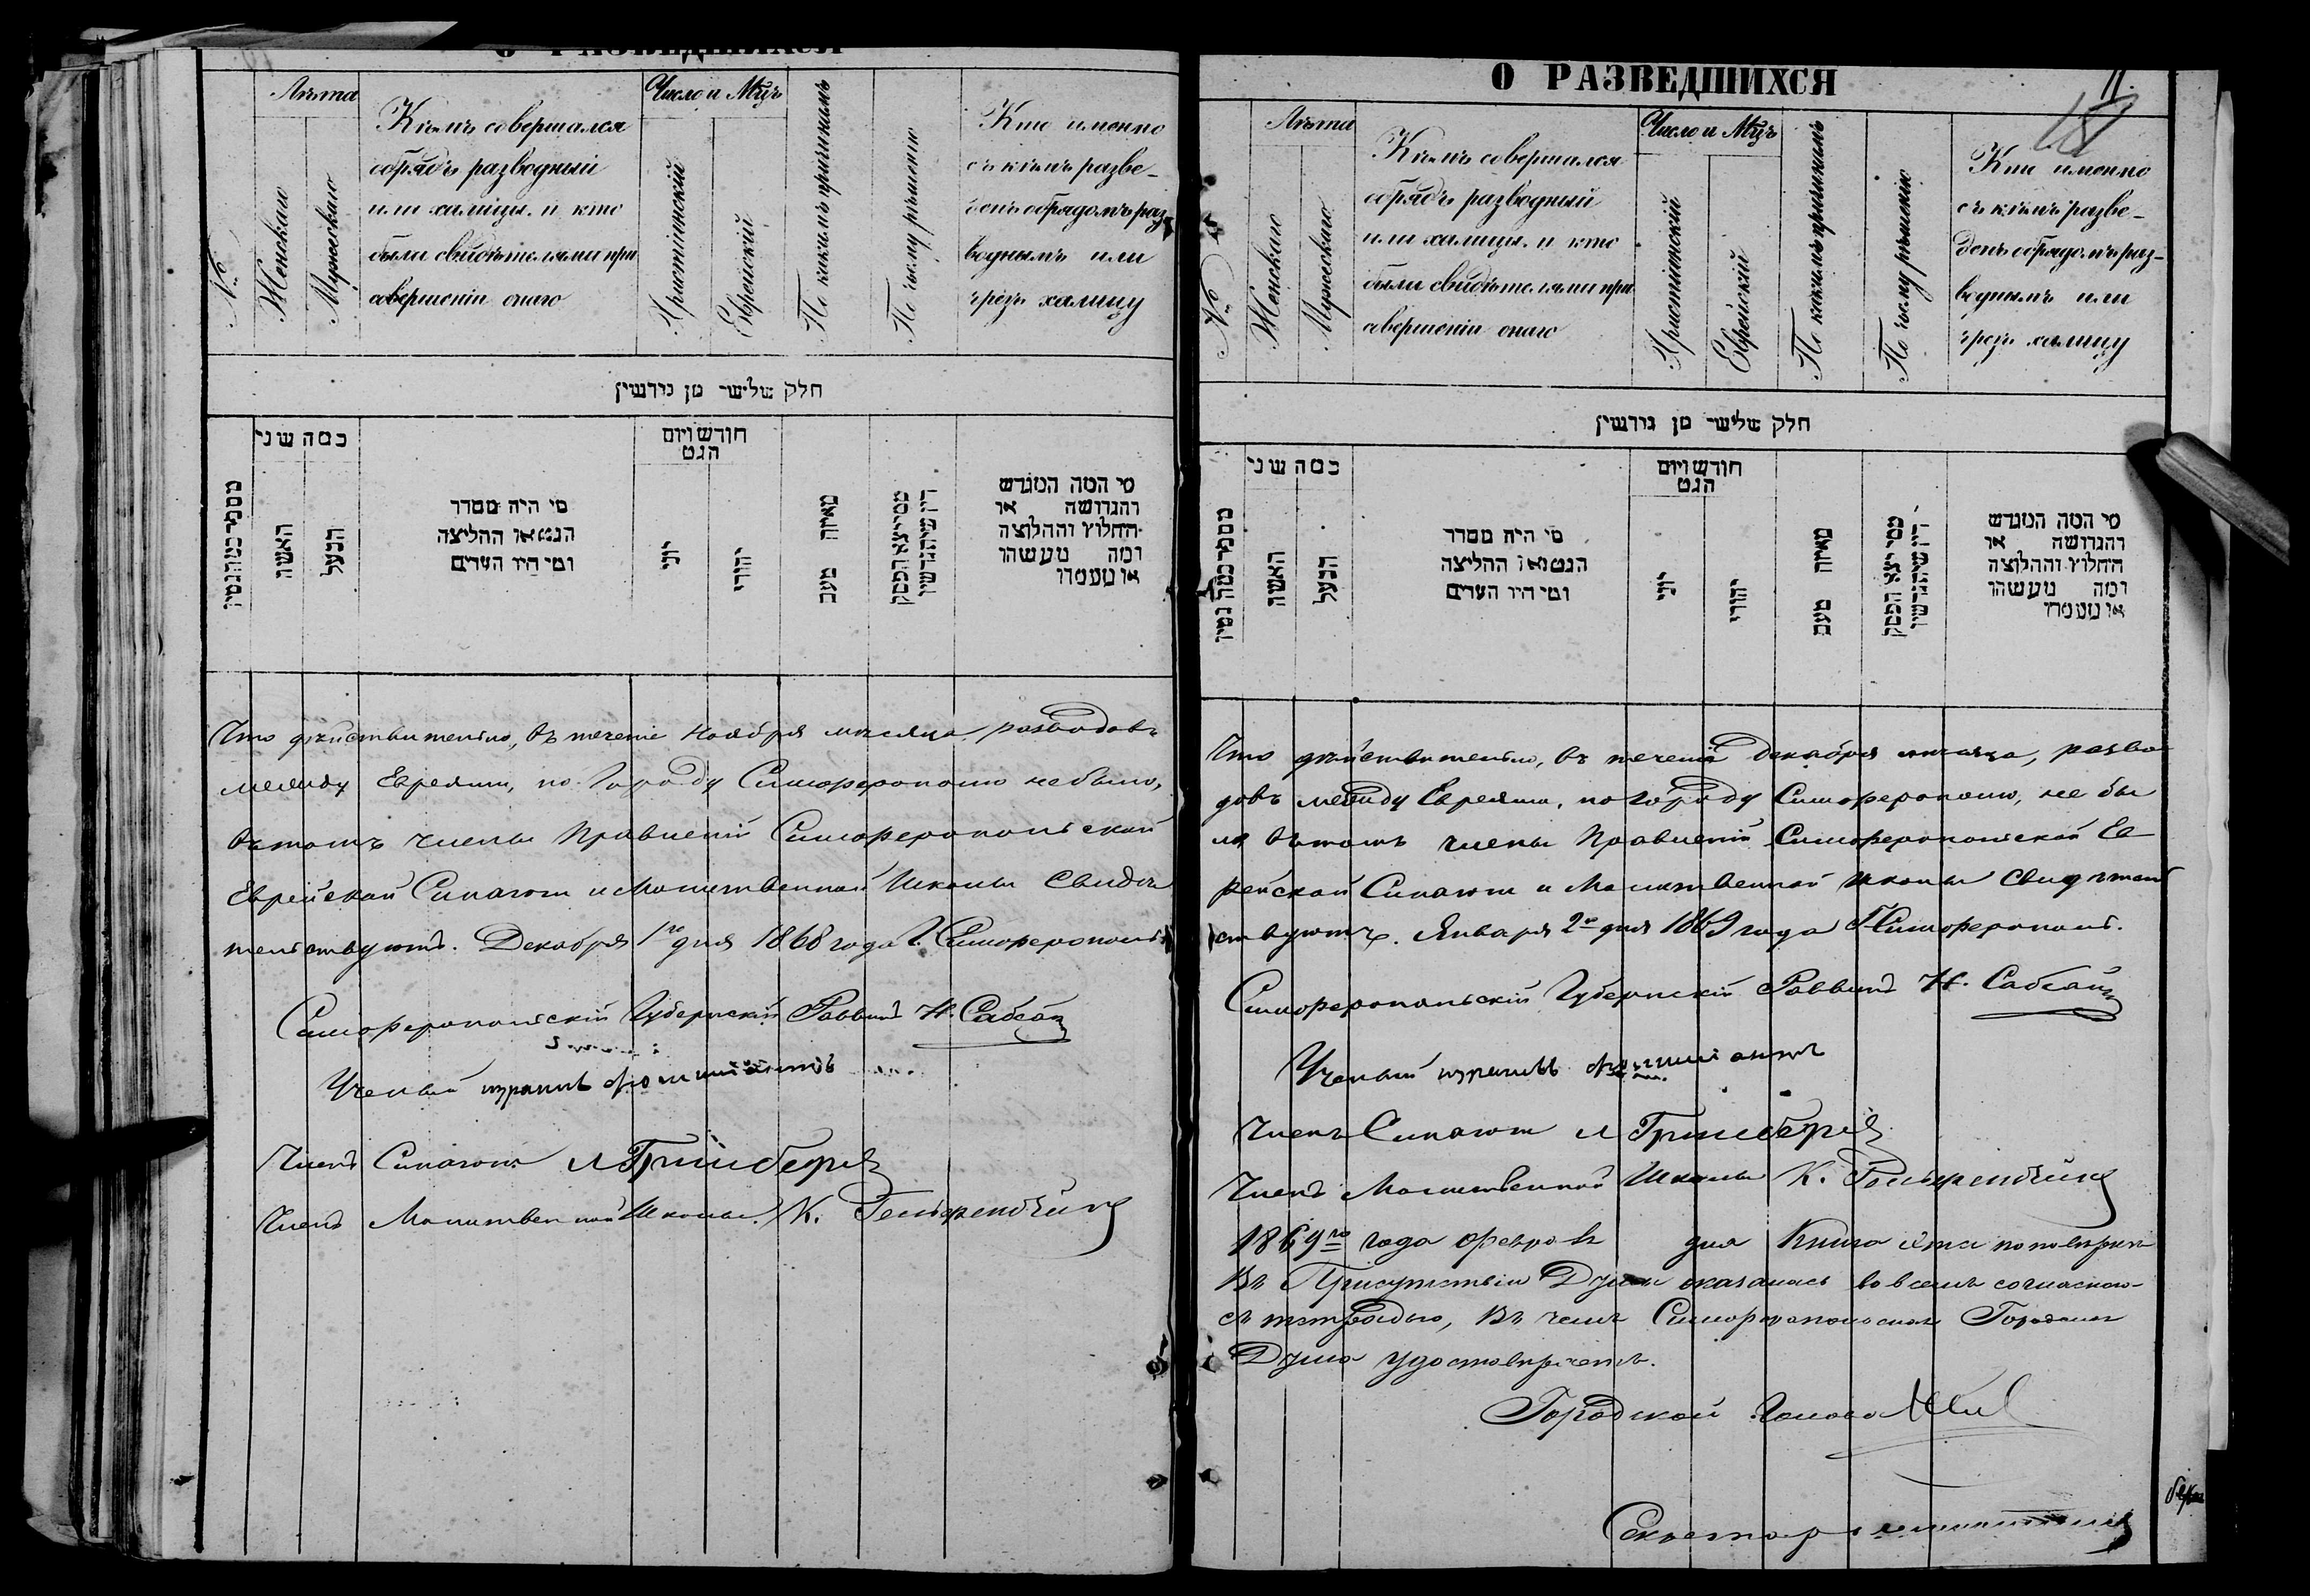 О РАЗВЕДШИХСЯ
№
Лѣта
Женскаго
Мужескаго
Кѣмъ совершался
обрядъ разводный
или халицы. и кто
были свидѣтелями при
совершеніи онаго
Число и Мцъ
Христіянскій
Еврейскій
По какимъ причинамъ
По чьему рѣшенію
Кто именно
съ кѣмъ разве-
денъ обрядомъ раз-
воднымъ или
чрезъ халицу
חלק שלישי מן גירושין
כמה שני
האשה
הבעל
מי היה מסדר
הגט או החליצה
ומי היו העדים
חודש ויום
הגט
יוני
יהודי
מאיזה טעם
ממי יצא הפסק
דין שיתגרשו
מי המה המגרש
והגרושה או
החלוץ וההלוצה
ומה מעשהו
או מעמדו
Что дѣйствительно, въ теченіе Ноября мѣсяца разводовъ
между Евреями, по Городу Симферополю не было,
въ томъ члены Правленій Симферопольской
Еврейской Синагоги и Молитвенной Школы Свидѣ
тельствуютъ. Декабря 1го дня 1868 года Г. Симферополь
Симферопольскій Губернскій Раввинъ Н. Сабсай
Ученый
Членъ Синагоги Л Гринбергъ
Членъ Молитвенной Школы К. Гельфендбейнъ
О РАЗВЕДШИХСЯ
11.
№
Лѣта
Женскаго
Мужескаго
Кѣмъ совершался
обрядъ разводный
или халицы. и кто
были свидѣтелями при
совершеніи онаго
Число и Мцъ
Христіянскій
Еврейскій
По какимъ причинамъ
По чьему рѣшенію
Кто именно
съ кѣмъ разве-
денъ обрядомъ раз-
воднымъ или
чрезъ халицу
חלק שלישי מן גירושין
כמה שני
האשה
הבעל
מי היה מסדר
הגט או החליצה
ומי היו העדים
חודש ויום
הגט
יוני
יהודי
מאיזה טעם
ממי יצא הפסק
דין שיתגרשו
מי המה המגרש
והגרושה או
החלוץ וההלוצה
ומה מעשהו
או מעמדו
Что дѣйствительно, въ теченіи Декабря мѣсяца, разво
довъ между Евреями, по Городу Симферополю, не бы
ло въ томъ члены Правленій Симферопольской Ев
рейской Синагоги и Молитвенной школы Свидѣтель
ствуютъ. Января 2го дня 1869 года Г. Симферополь.
Симферопольскій Губернскій Раввинъ Н. Сабсай
Ученый
Членъ Синагоги Л Гринбергъ
Членъ Молитвенной Школы К. Гельфендбейнъ
1869го года Февраля дня Книга эта по повѣркѣ
въ Присутствіи Думы оказалась во всемъ согласною
съ тетрадью, въ чемъ Симферопольская Городская
Дума удостовѣряетъ.
Городской Голова
Секретарь